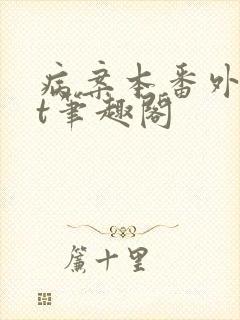 病案本番外
t笔趣阁
簾十里